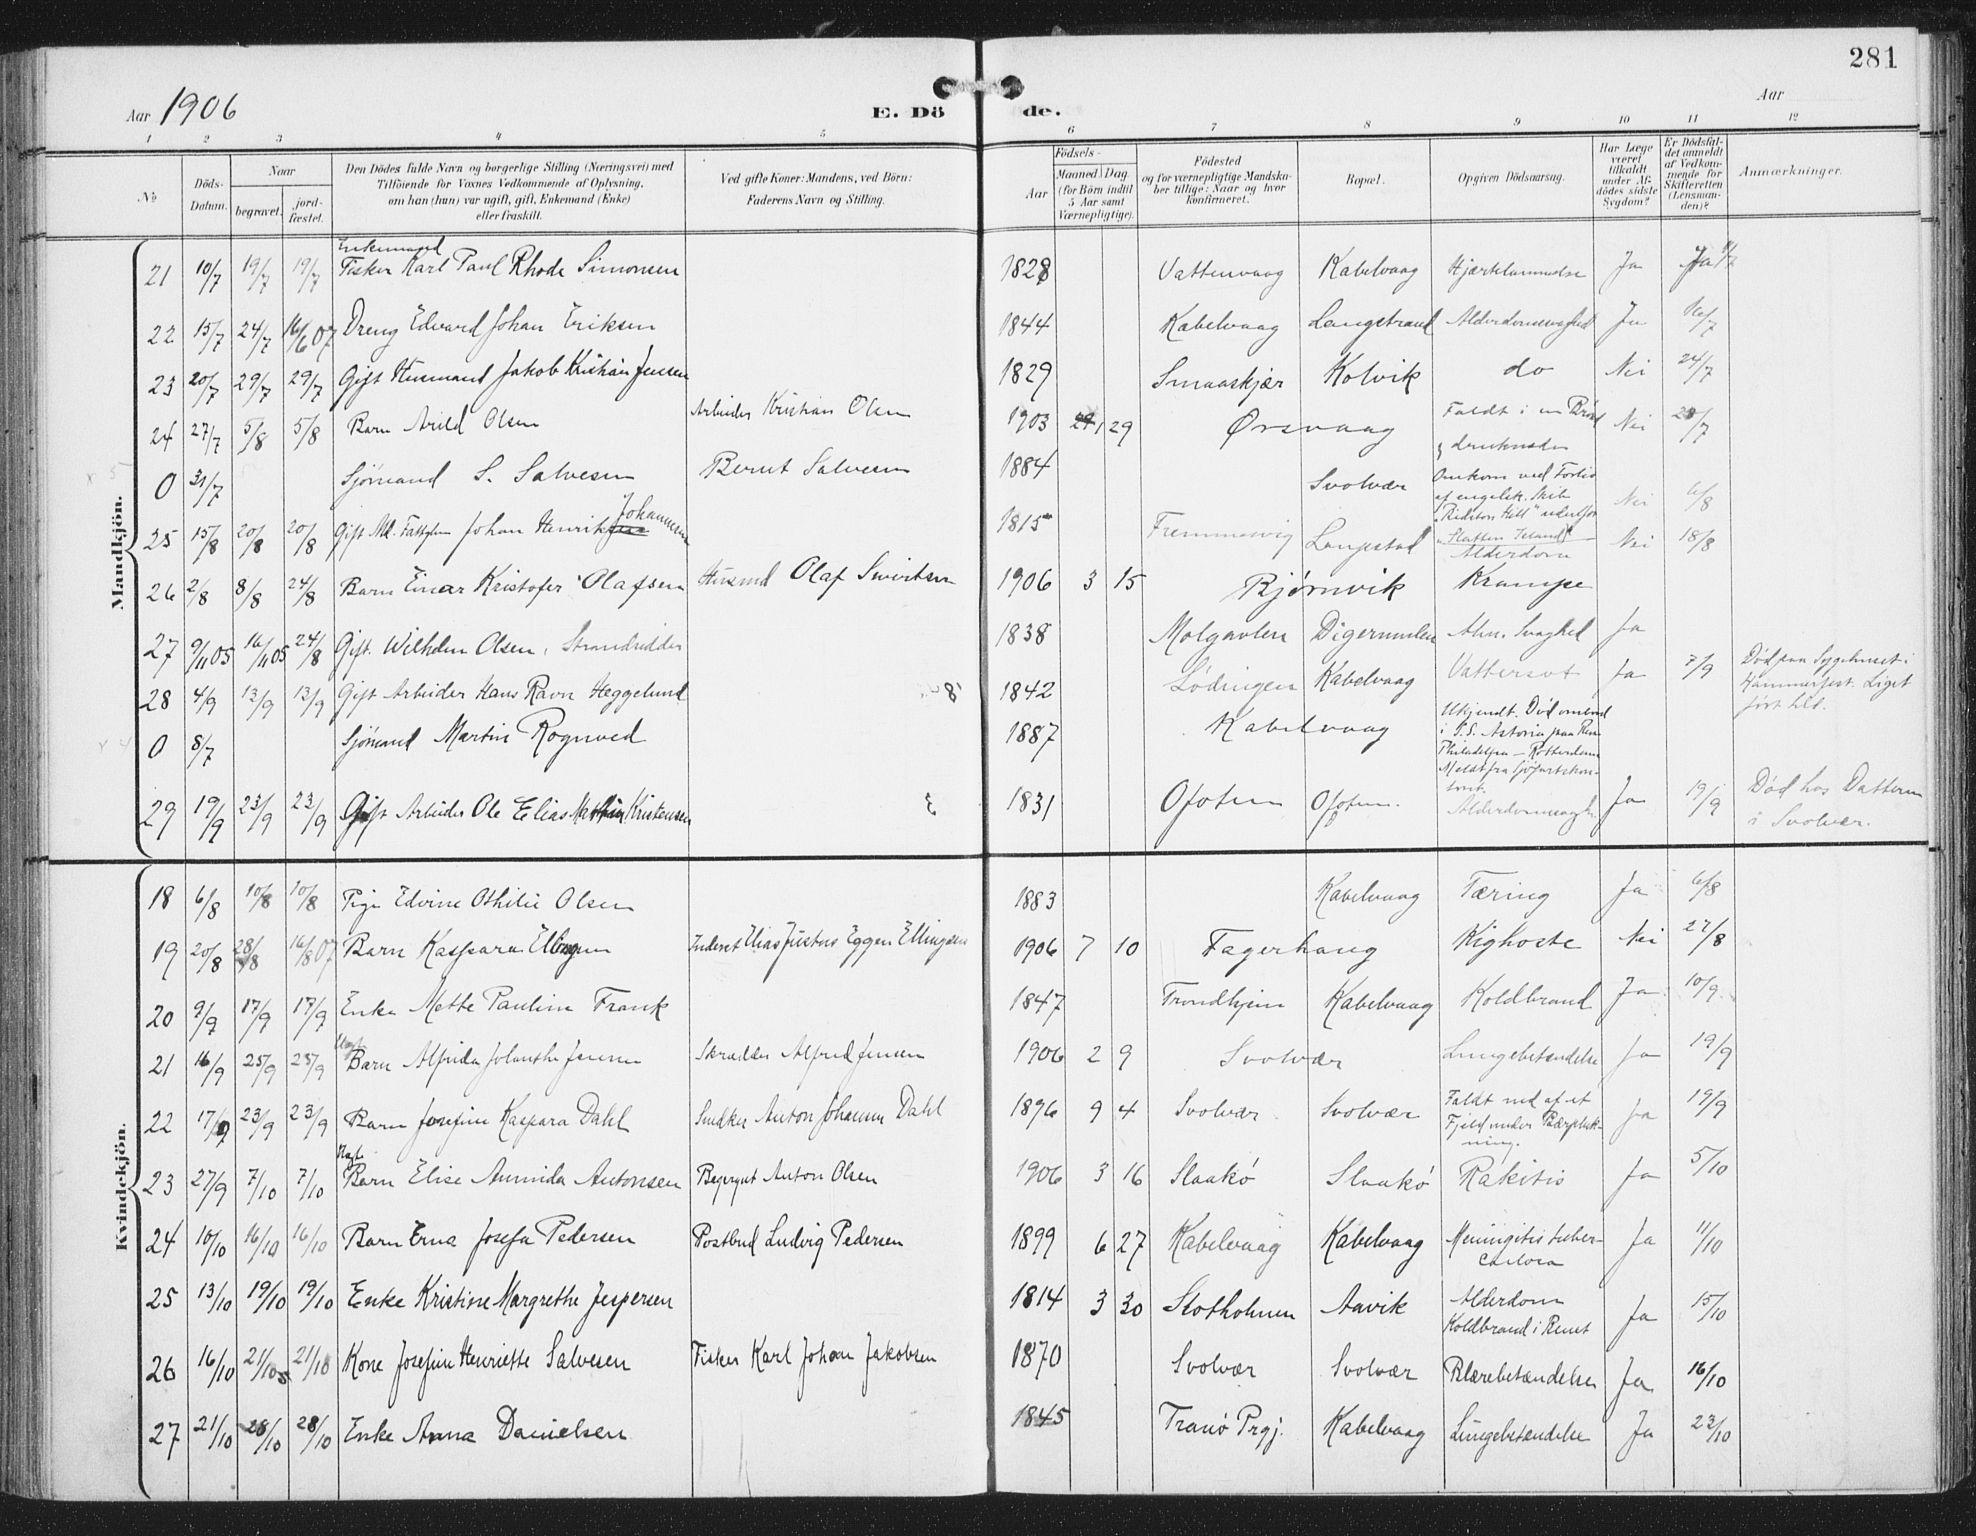 281
Aar 1906
E. Dö de.
Aar
1 2 3 4 5 6 7 8 9 10 11 12
No
Döds-Datum.
Naar
begravet.
jord-fæstet.
Den Dödes fulde Navn og borgerlige Stilling (Næringsvei) med
Tilföiende for Voxnes Vedkommende af Oplysning,
om han (hun) var ugift, gift, Enkemand (Enke)
eller fraskilt.
Ved gifte Koner: Mandens, ved Börn:
Faderens Navn og Stilling.
Födsels-
Aar
Maaned. Dag.
(for Börn indtil
5 Aar samt
Værnepligtige).
Födested
og for værnepligtige Mandska-
ber tillige: Naar og hvor
konfirmeret.
Bopæl.
Opgiven Dödsaarsag.
Har Læge
været
tilkaldt
under Af-
dödes sidste
Sygdom?
Er Dödsfal-
det anmeldt
af Vedkom-
mende for
Skifteretten
(Lensman-
den)?
Anmærkninger.
Mandkjön.
21 10/7 19/7 19/7 Enkemand Fisker Karl Paul Rhode Simonsen 1828 Vattenvaag Kabelvaag Hjærtelammelse Ja
22 15/7 24/7 16/6 07 Dreng Edvard Johan Eriksen 1844 Kabelvaag Langstrand Alderdomssvaghed Ja 16/7
23 20/7 29/7 29/7 Gift Husmand Jakob Kristian Jensen 1829 Smaaskjær Kolvik do Nei 24/7
24 27/7 5/8 5/8 Barn Arild Olsen Arbeider Kristian Olsen 1903 1 29 Ørsvaag Faldt i en Brønd
& druknede Nei 28/7
0 31/7 Sjömand S. Salvesen Bernt Salvesen 1884 Svolvær Omkom ved Forlis
af engelsk Skib Nei 6/8
25 15/8 20/8 20/8 Gift Johan Henrik Johannesen 1815 Langstad Alderdom Nei 18/8
26 2/8 8/8 24/8 Barn Einar Kristofer Olafsen Husmd Olaf Sivertsen 1906 3 15 Bjørnvik Krampe
27 9/11 05 16/11 05 24/8 Gift. Wilhelm Olsen, Strandsidder 1838 Molgavlen Digermulen Alm. Svaghed Ja
28 4/9 13/9 13/9 Gift Arbeider Hans Ravn Heggelund 1842 Lödingen Kabelvaag Vattersot Ja 7/9 Död paa Sygehuset i
Hammerfest. Liget
ført hid.
0 8/7 Sjömand Martin Rognved 1887 Kabelvaag Ukjendt. Död ombord
i S.S. Astoria paa Rei
Philadelfia – Rotterdam
Meldt fra Sjöfartskon-
toret.
29 19/9 23/9 23/9 Gift Arbeider Ole Elias Mathias Kristensen 1831 Ofoten Ofoten. Alderdomssvagh. Ja 19/9 Död hos Datteren
i Svolvær.
Kvindekjön.
18 6/8 10/8 10/8 Pige Edvine Othilie Olsen 1883 Kabelvaag Tæring Ja 6/8
19 20/8 28/8 16/8 07 Barn Kaspara Ellingsen Inderst Elias Justus Eggen Ellingsen 1906 7 10 Fagerhaug Kighoste Nei 27/8
20 9/9 17/9 17/9 Enke Mette Pauline Frank 1847 Trondhjem Kabelvaag Koldbrand Ja 10/9
21 16/9 25/9 25/9 Barn Alfrida Jolanthe Jensen Skrædder Alfred Jensen 1906 2 9 Svolvær Lungebetændelse Ja 19/9
22 17/9 23/9 23/9 Barn Josefine Kaspara Dahl Snedker Anton Johannes Dahl 1896 9 4 Svolvær Svolvær Faldt ned af et
Fjeld under Bærpluk-
ning. Ja 19/9
23 27/9 7/10 7/10 Barn Elise Ammida Antonsen Anton Olsen 1906 3 16 Slaakö Slaakö Rakitis Ja 5/10
24 10/10 16/10 16/10 Barn Erna Josefa Pedersen Postbud Ludvig Pedersen 1899 6 27 Kabelvaag Kabelvaag Meningitis tuber-
culosa Ja 11/10
25 13/10 19/10 19/10 Enke Kristine Margrethe Jespersen 1814 3 30 Slotholmen Aavik Alderdom
Koldbrand i Benet Ja 15/10
26 16/10 21/10 21/10 Kone Josefine Henriette Salvesen Fisker Karl Johan Jakobsen 1870 Svolvær Svolvær Blærebetændelse Ja 16/10
27 21/10 28/10 28/10 Enke Anna Danielsen 1845 Tranö Prgj. Kabelvaag Lungebetændelse Ja 23/10